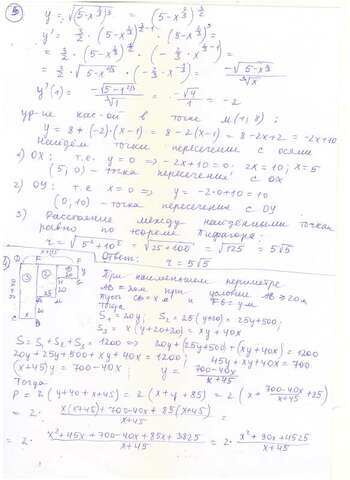 5) y = √(5-x^(2/3))^3 = (5-x^(2/3))^(3/2)
y' = 3/2 · (5-x^(2/3))^(3/2-1) · (5-x^(2/3))' =
= 3/2 · (5-x^(2/3))^(1/2) · (-2/3 · x^(2/3-1)) =
= 3/2 · √(5-x^(2/3)) · (-2/3 · x^(-1/3)) = -√(5-x^(2/3)) / ∛x
y'(1) = -√(5-1^(2/3)) / ∛1 = -√4 / 1 = -2
ур-ие кас-ой в точке M(1; 8):
y = 8 + (-2)·(x-1) = 8 - 2(x-1) = 8-2x+2 = -2x+10
Найдём точки пересечения с осями
1) OX: т.е. y=0 => -2x+10=0. 2x=10; x=5
(5; 0) - точка пересечения с OX
2) OY: т.е x=0 => y = -2·0+10=10
(0; 10) - точка пересечения с OY
3) Расстояние между найденными точками
равно по теореме Пифагора:
r = √(5²+10²) = √(25+100) = √125 = 5√5
Ответ: r = 5√5
При наименьшем периметре
AB = 20м при условии AB ≥ 20м
пусть CB = x м и FE = y м
Тогда
S₁ = 20y; S₂ = 25(y+20) = 25y+500;
S₃ = x(y+20+20) = xy+40x
S = S₁+S₂+S₃ = 1200 => 20y+(25y+500)+(xy+40x) = 1200
20y+25y+500+xy+40x = 1200; 45y+xy+40x = 700
(x+45)y = 700-40x; y = (700-40x)/(x+45)
Тогда
P = 2(y+40+x+45) = 2(x+y+85) = 2(x + (700-40x)/(x+45) + 85) =
= 2 · (x(x+45)+700-40x+85(x+45))/(x+45) =
= 2 · (x²+45x+700-40x+85x+3825)/(x+45) = 2 · (x²+90x+4525)/(x+45)